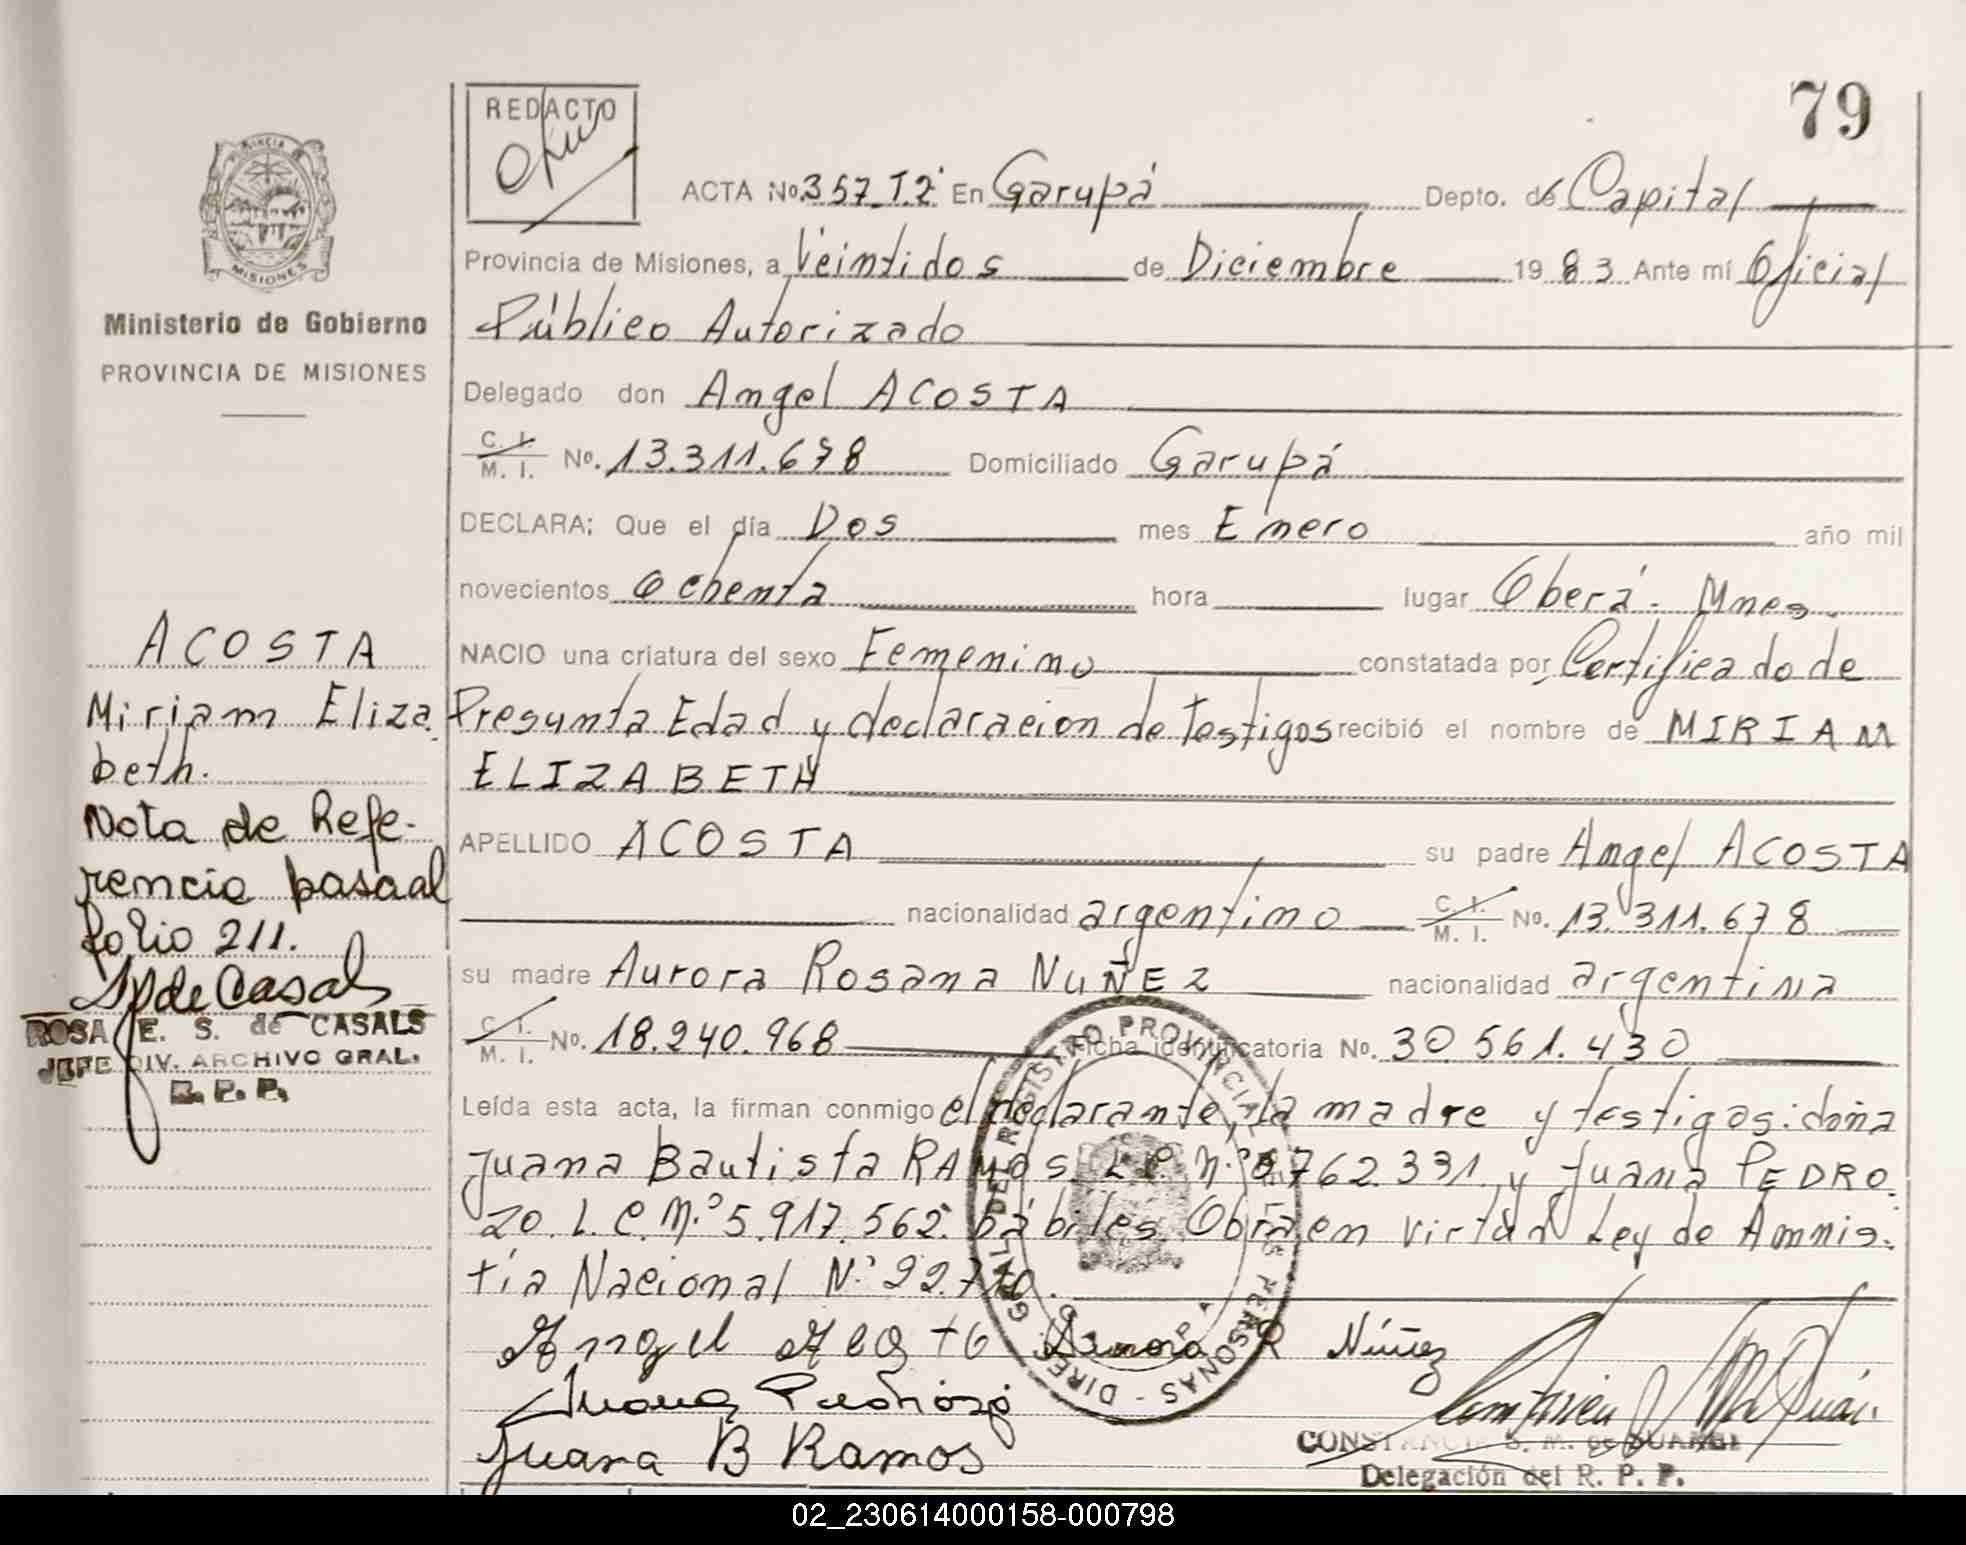 79
REDACTO
ACTA No. 357_T.2º En Garupá Depto. de Capital
Provincia de Misiones, a Veintidos de Diciembre 19 83 Ante mí Oficial
Público Autorizado
Delegado don Angel ACOSTA
C. I. M. I. No. 13.311.678 Domiciliado Garupá
DECLARA: Que el día Dos mes Enero año mil
novecientos Ochenta hora lugar Oberá. Mnes.
NACIO una criatura del sexo Femenino constatada por Certificado de
Presunta Edad y declaracion de Testigos recibió el nombre de MIRIAM
ELIZABETH
APELLIDO ACOSTA su padre Angel ACOSTA
nacionalidad argentino C. I. M. I. No. 13.311.678
su madre Aurora Rosana NUÑEZ nacionalidad argentina
C. I. M. I. No. 18.240.968 Ficha identificatoria No. 30.561.430
Leída esta acta, la firman conmigo el declarante, la madre y testigos: doña
Juana Bautista RAMOS L.C. N.º 762.331. y Juana PEDRO.
ZO. L.C. N.º 5.917.562. hábiles. Obra en virtud Ley de Amnis.
tía Nacional N.º 22.
Angel Acosta Aurora R Núñez
Juana Pedrozo
Juana B Ramos
CONSTANCIA S. M. de DUARTE
Delegación del R. P. P.
PROVINCIA DE MISIONES
Ministerio de Gobierno
PROVINCIA DE MISIONES
ACOSTA
Miriam Eliza.
beth.
Nota de Refe-
rencia pasa al
folio 211.
S/ de Casals
ROSA E. S. de CASALS
JEFE DIV. ARCHIVO GRAL.
R. P. P.
DIREC GRAL DEL REGISTRO PROVINCIAL DE LAS PERSONAS
02_230614000158-000798